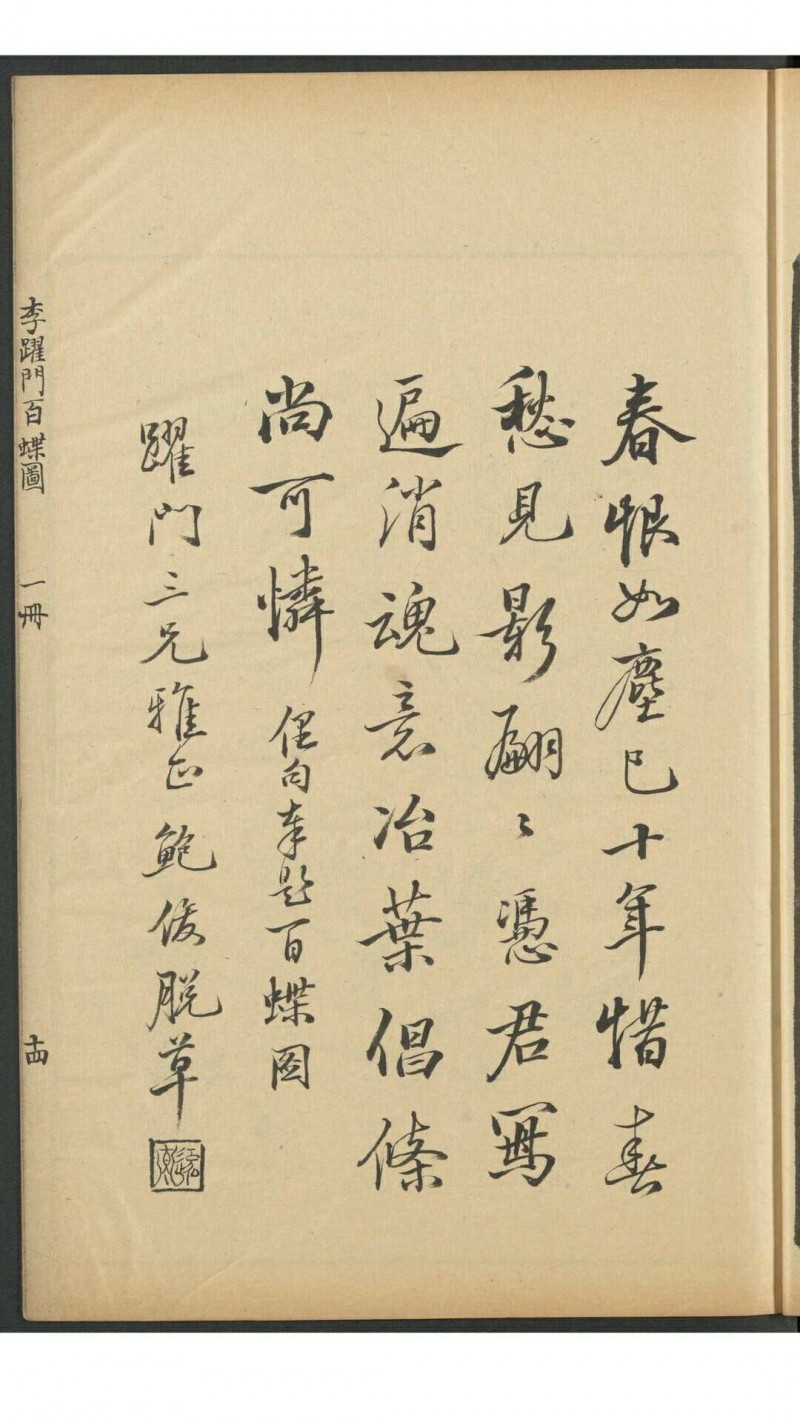 春恨如塵已十年惜春
愁見影翩〻憑君寫
遍消魂意冶葉倡條
尚可憐 俚句奉題百蝶圖
躍門三兄雅正 鮑俊脫草
李躍門百蝶圖 一冊 十四